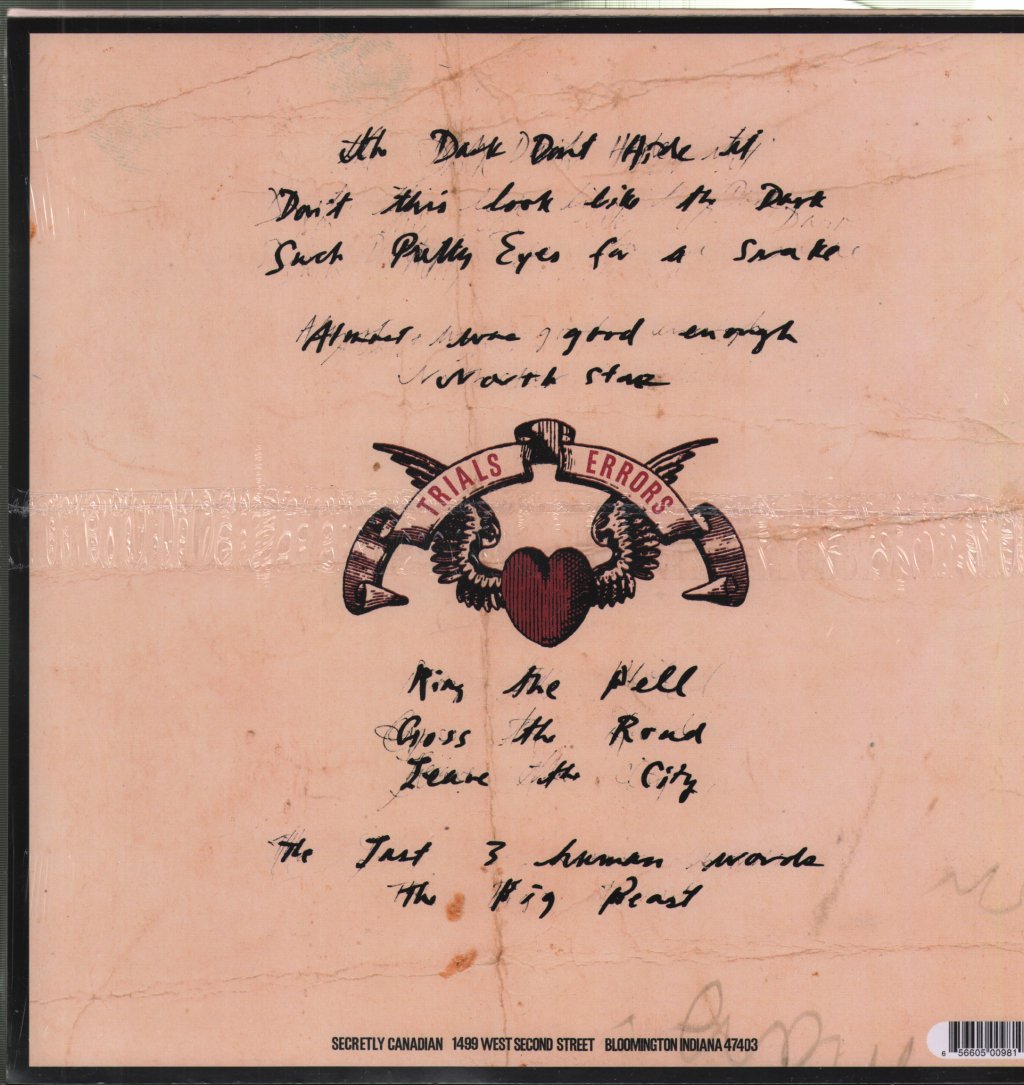 the Dark Don't Hide it
Don't this look like the Dark
Such Pretty Eyes for a Snake
Almost was good enough
North Star
TRIALS ERRORS
Ring the Bell
Cross the Road
Leave the City
the Last 3 human words
the Big Beast
SECRETLY CANADIAN 1499 WEST SECOND STREET BLOOMINGTON INDIANA 47403
6 56605 00981